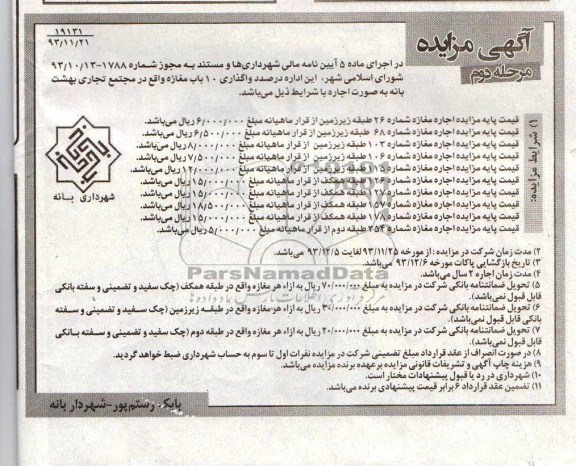 ۱۹۱۳۱
۹۳/۱۱/۲۱
آگهی مزایده
مرحله دوم
در اجرای ماده ۵ آیین نامه مالی شهرداری‌ها و مستند به مجوز شماره ۱۷۸۸-۹۳/۱۰/۱۳
شورای اسلامی شهر، این اداره درصدد واگذاری ۱۰ باب مغازه واقع در مجتمع تجاری بهشت
بانه به صورت اجاره با شرایط ذیل می‌باشد.
۱) شرایط مزایده:
قیمت پایه مزایده اجاره مغازه شماره ۲۶ طبقه زیرزمین از قرار ماهیانه مبلغ ۶/۰۰۰/۰۰۰ ریال می‌باشد.
قیمت پایه مزایده اجاره مغازه شماره ۶۸ طبقه زیرزمین از قرار ماهیانه مبلغ ۶/۵۰۰/۰۰۰ ریال می‌باشد.
قیمت پایه مزایده اجاره مغازه شماره ۱۰۳ طبقه زیرزمین از قرار ماهیانه مبلغ ۸/۰۰۰/۰۰۰ ریال می‌باشد.
قیمت پایه مزایده اجاره مغازه شماره ۱۰۶ طبقه زیرزمین از قرار ماهیانه مبلغ ۷/۵۰۰/۰۰۰ ریال می‌باشد.
قیمت پایه مزایده اجاره مغازه شماره طبقه زیرزمین از قرار ماهیانه مبلغ ۱۲/۰۰۰/۰۰۰ ریال می‌باشد.
قیمت پایه مزایده اجاره مغازه شماره طبقه همکف از قرار ماهیانه مبلغ ۱۵/۰۰۰/۰۰۰ ریال می‌باشد.
قیمت پایه مزایده اجاره مغازه شماره طبقه همکف از قرار ماهیانه مبلغ ۱۵/۰۰۰/۰۰۰ ریال می‌باشد.
قیمت پایه مزایده اجاره مغازه شماره ۱۵۷ طبقه همکف از قرار ماهیانه مبلغ ۱۸/۵۰۰/۰۰۰ ریال می‌باشد.
قیمت پایه مزایده اجاره مغازه شماره ۱۷۸ طبقه همکف از قرار ماهیانه مبلغ ۱۵/۰۰۰/۰۰۰ ریال می‌باشد.
قیمت پایه مزایده اجاره مغازه شماره ۲۵۳ طبقه دوم از قرار ماهیانه مبلغ ۵/۰۰۰/۰۰۰ ریال می‌باشد.
شهرداری بانه
۲) مدت زمان شرکت در مزایده: از مورخه ۹۳/۱۱/۲۵ لغایت ۹۳/۱۲/۵ می‌باشد.
۳) تاریخ بازگشایی پاکات مورخه ۹۳/۱۲/۶ می‌باشد.
۴) مدت زمان اجاره ۲ سال می‌باشد.
ParsNamadData
۵) تحویل ضمانتنامه بانکی شرکت در مزایده به مبلغ ۷۰/۰۰۰/۰۰۰ ریال به ازاء هر مغازه واقع در طبقه همکف (چک سفید و تضمینی و سفته بانکی
قابل قبول نمی‌باشد).
۶) تحویل ضمانتنامه بانکی شرکت در مزایده به مبلغ ۳۰/۰۰۰/۰۰۰ ریال به ازاء هر مغازه واقع در طبقه زیرزمین (چک سفید و تضمینی و سفته
بانکی قابل قبول نمی‌باشد).
۷) تحویل ضمانتنامه بانکی شرکت در مزایده به مبلغ ۲۰/۰۰۰/۰۰۰ ریال به ازاء هر مغازه واقع در طبقه دوم (چک سفید و تضمینی و سفته بانکی
قابل قبول نمی‌باشد).
۸) در صورت انصراف از عقد قرارداد مبلغ تضمینی شرکت در مزایده نفرات اول تا سوم به حساب شهرداری ضبط خواهد گردید.
۹) هزینه چاپ آگهی و تشریفات قانونی مزایده بر عهده برنده مزایده می‌باشد.
۱۰) شهرداری در رد یا قبول پیشنهادات مختار است.
۱۱) تضمین عقد قرارداد ۶ برابر قیمت پیشنهادی برنده می‌باشد.
بابک رستم‌پور-شهردار بانه